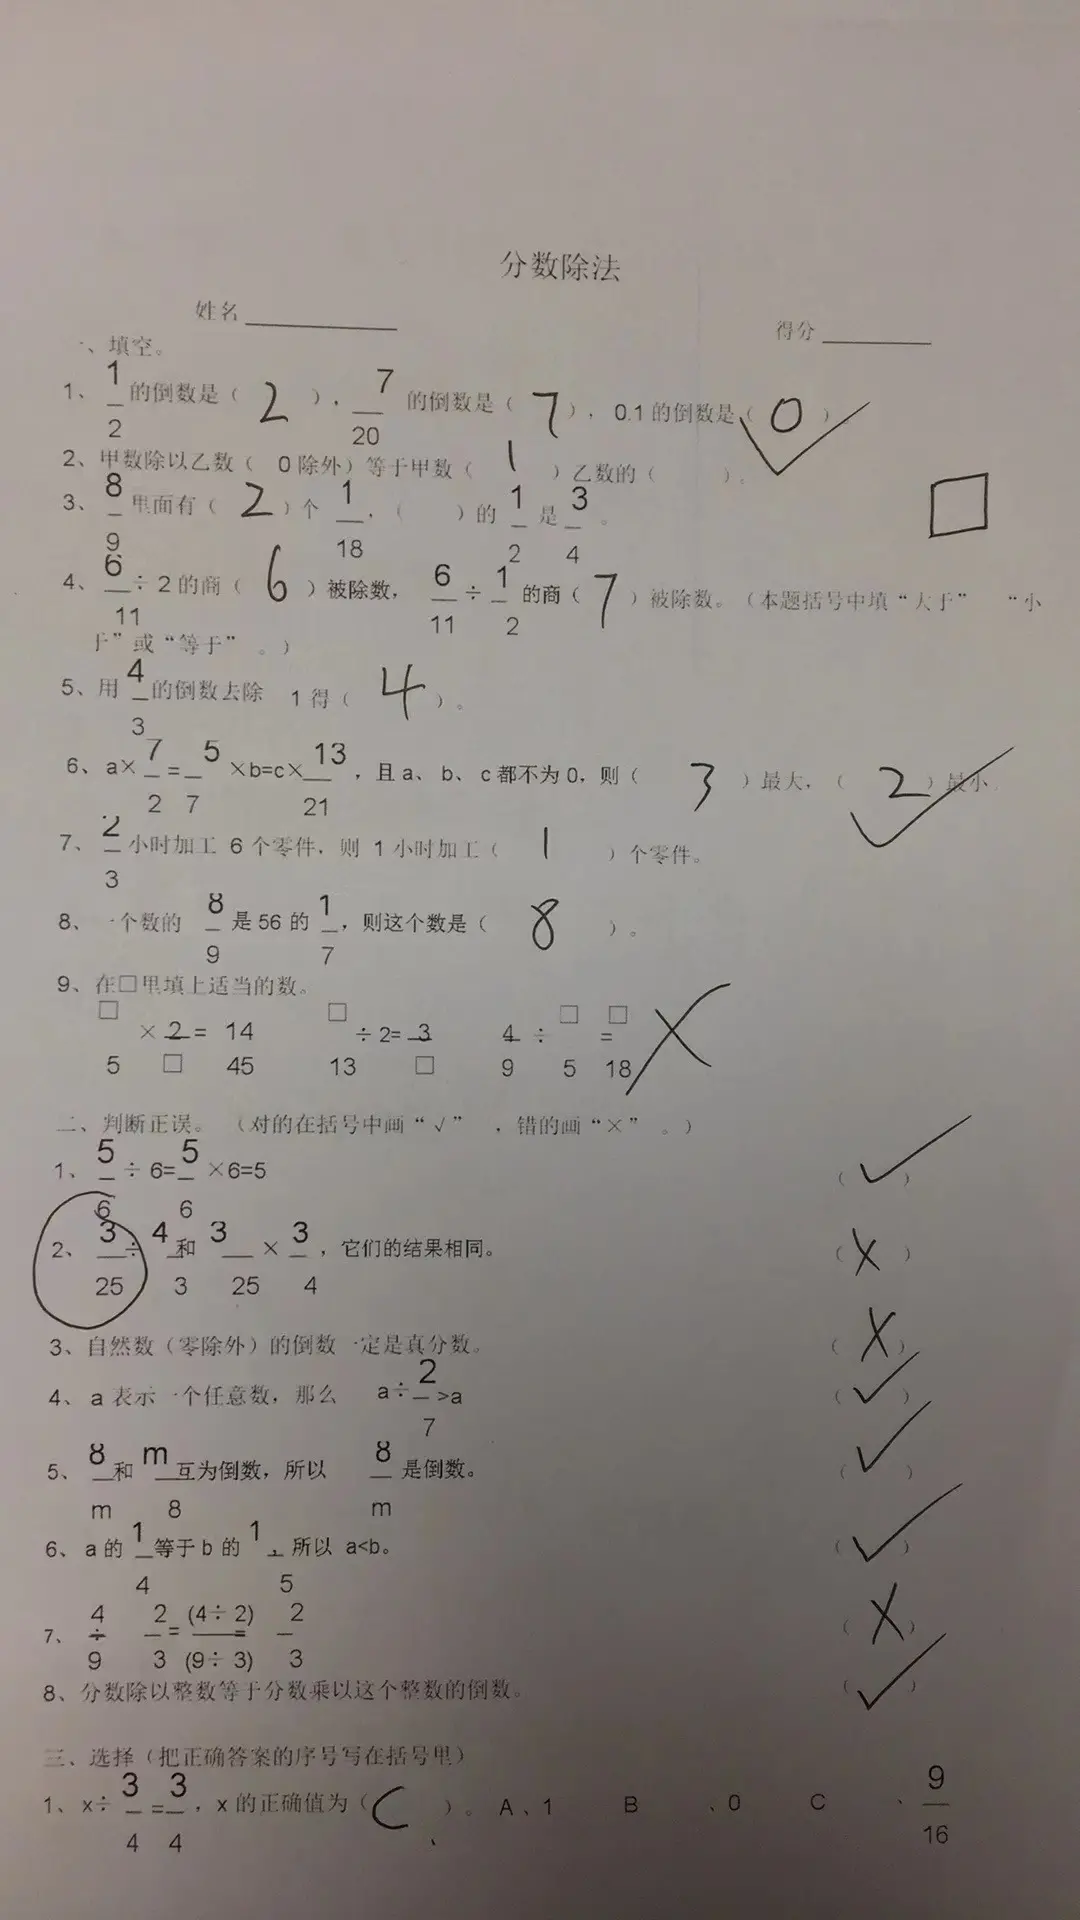 分数除法
姓名
得分
一、填空。
1、1/2的倒数是（ 2 ），7/20的倒数是（ 7 ），0.1的倒数是（ 0 ）
2、甲数除以乙数（ 0除外）等于甲数（ 1 ）乙数的（ ）。
3、8/9里面有（ 2 ）个1/18，（ ）的1/2是3/4。
4、6/11÷2的商（ 6 ）被除数，6/11÷1/2的商（ 7 ）被除数。（本题括号中填“大于” “小
于”或“等于” 。）
5、用4/3的倒数去除 1得（ 4 ）。
6、a×7/2=5/7×b=c×13/21，且a、b、c都不为0，则（ 3 ）最大，（ 2 ）最小
7、2/3小时加工 6个零件，则 1小时加工（ 1 ）个零件。
8、一个数的8/9是56的1/7，则这个数是（ 8 ）。
9、在□里填上适当的数。
□/5×2/□=14/45 □/13÷2=3/□ 4/9÷□/5=□/18 ×
二、判断正误。（对的在括号中画“√” ，错的画“×” 。）
1、5/6÷6=5/6×6=5 （ √ ）
2、3/25÷4/3和3/25×3/4，它们的结果相同。 （ × ）
3、自然数（零除外）的倒数一定是真分数。 （ × ）
4、a表示一个任意数，那么 a÷2/7>a （ √ ）
5、8/m和m/8互为倒数，所以 8/m是倒数。 （ √ ）
6、a的1/4等于b的1/5，所以 a<b。 （ √ ）
7、4/9÷2/3=(4÷2)/(9÷3)=2/3 （ × ）
8、分数除以整数等于分数乘以这个整数的倒数。 （ √ ）
三、选择（把正确答案的序号写在括号里）
1、x÷3/4=3/4，x的正确值为（ C ）。A、1 B、0 C、9/16